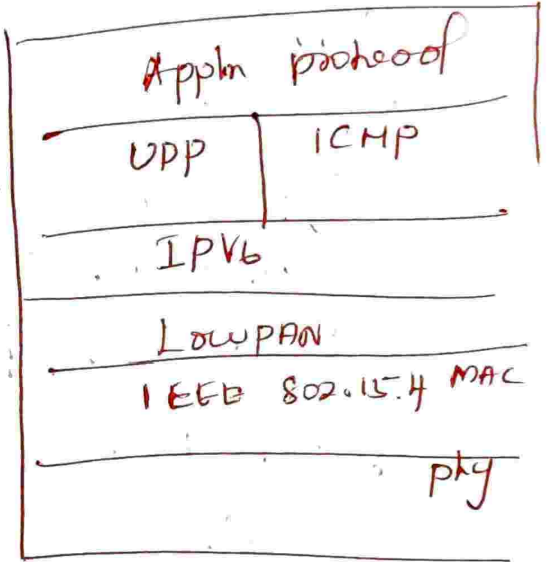 Appln protocol
UDP ICMP
IPV6
LOWPAN
IEEE 802.15.4 MAC
phy